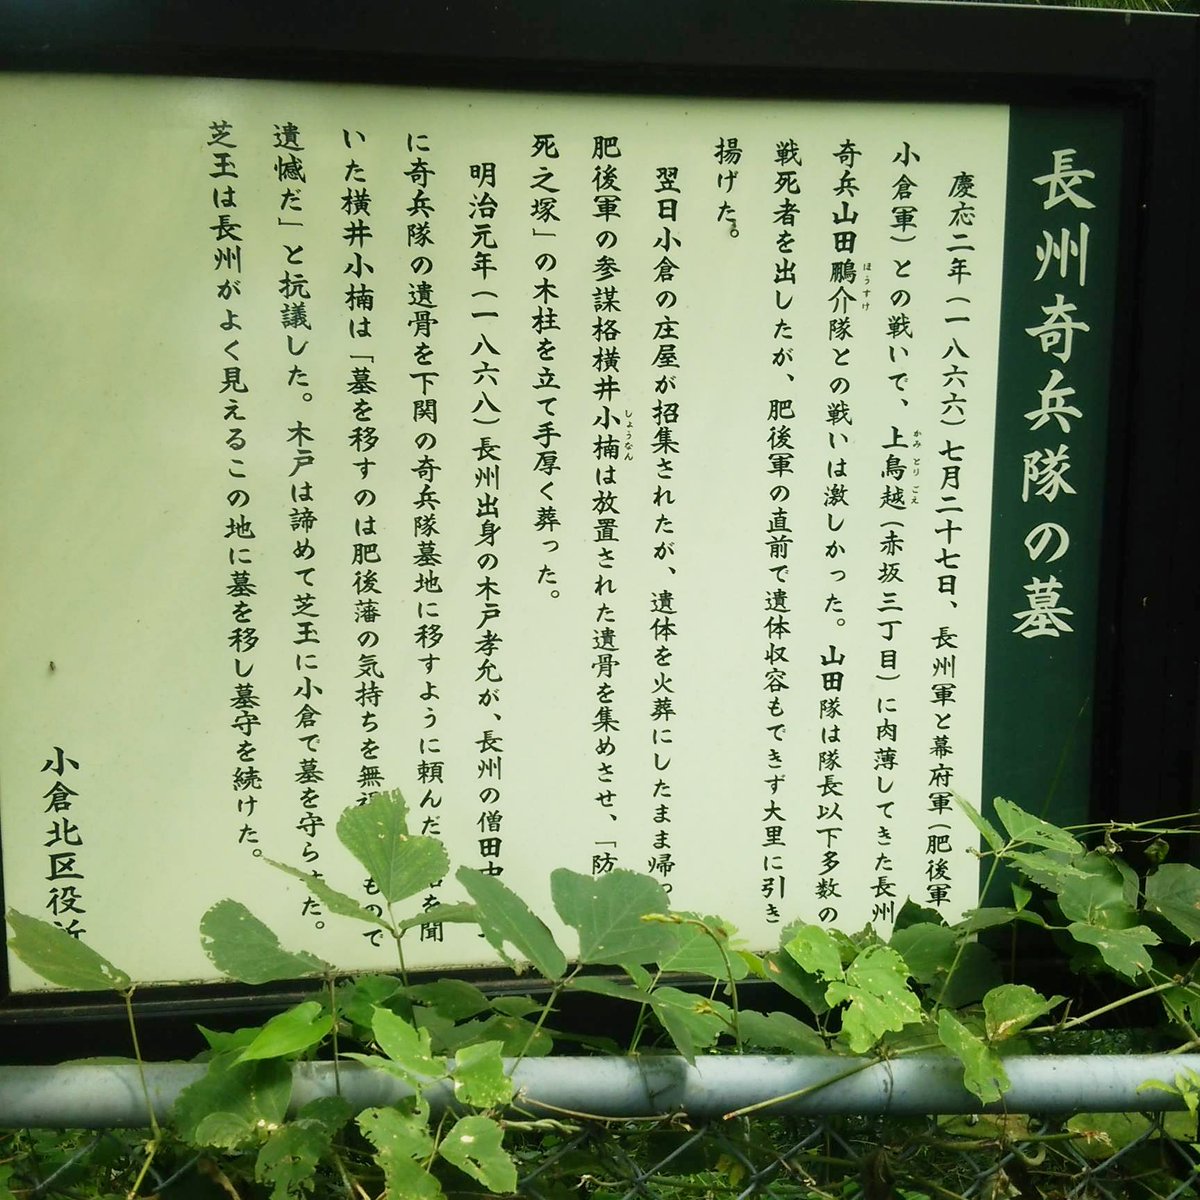 長州奇兵隊の墓
慶応二年（一八六六）七月二十七日、長州軍と幕府軍（肥後軍
小倉軍）との戦いで、上鳥越（赤坂三丁目）に肉薄してきた長州
かみとりごえ
奇兵山田鵬介隊との戦いは激しかった。山田隊は隊長以下多数の
ほうすけ
戦死者を出したが、肥後軍の直前で遺体収容もできず大里に引き
揚げた。
翌日小倉の庄屋が招集されたが、遺体を火葬にしたまま帰っ
肥後軍の参謀格横井小楠は放置された遺骨を集めさせ、「防
しょうなん
死之塚」の木柱を立て手厚く葬った。
明治元年（一八六八）長州出身の木戸孝允が、長州の僧田中
に奇兵隊の遺骨を下関の奇兵隊墓地に移すように頼んだ を聞
いた横井小楠は「墓を移すのは肥後藩の気持ちを無 もので
遺憾だ」と抗議した。木戸は諦めて芝玉に小倉で墓を守ら た。
芝玉は長州がよく見えるこの地に墓を移し墓守を続けた。
小倉北区役所